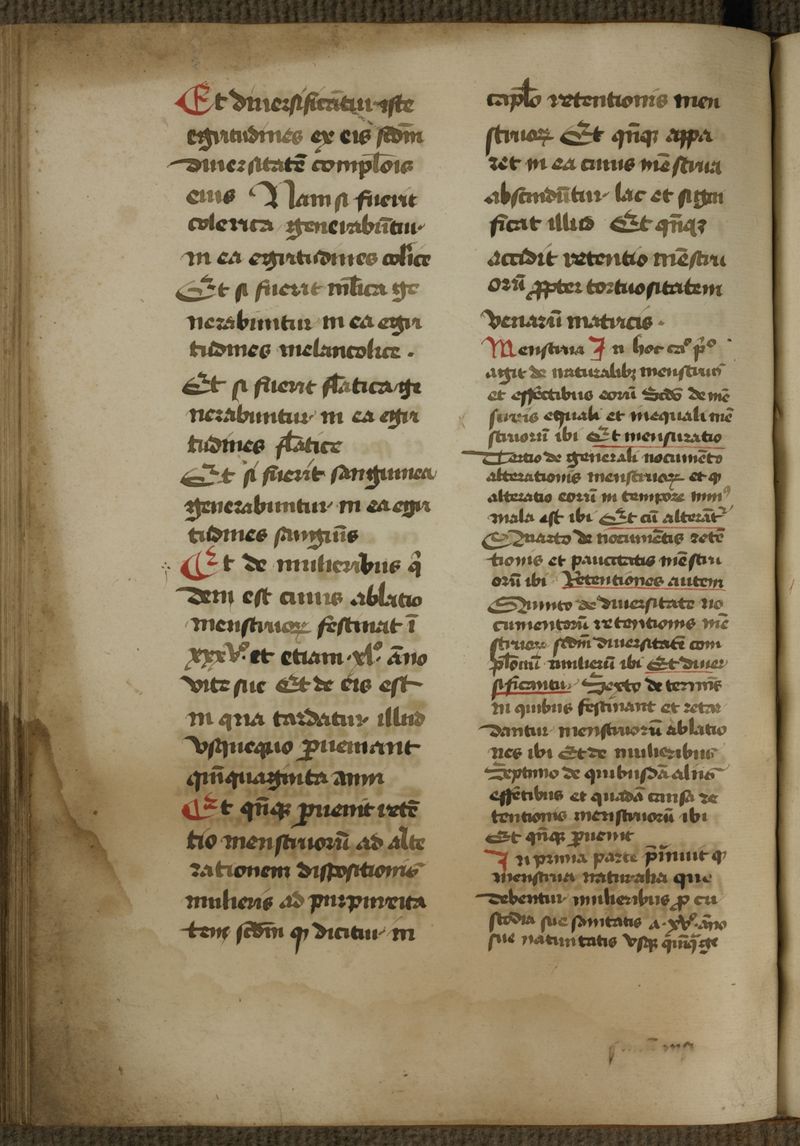 Et diuersificãtur iste
egritudines ex eis scdm
diuersitatẽ compl̃ois
eius Nam si fuerit
colerica generabũtur
in ea egritudines colice
Et si fuerit ml̃ica ge
nerabuntur in ea egri
tudines melancolice .
Et si fuerit fl̃atica ge
nerabuntur in ea egri
tudines fl̃atice
Et si fuerit sanguinea
generabuntur in ea egri
tudines sanguĩs
Et de mulieribus q̃
dem est cuius ablatio
menstruoꝝ festinat ĩ
xxxvº. et etiam .xlº. ãno
vite sue Et de eis est
in qua tardatur illud
vsquequo ꝓueniant
quĩquaginta anni
Et qñqꝫ ꝓuenit retẽ
tio menstruorũ ad alte
rationem dispositionis
mulieris ad
tem scdm ꝙ dicitur in
capl̃o retentionis men
struoꝝ Et qñqꝫ appa
ret in ea cuius mẽstrua
absindũtur lac et signi
ficat illud Et qñqꝫ
accidit retentio mẽstru
orũ ꝓpter tortuositatem
venarũ matricis .
Menstrua In hoc caº pº
agit de naturalibꝫ menstruis
et effectibus eorũ Scdo de mẽ
suris equali et inequali mẽ
struorũ ibi Et mensuratio
Tertio de generali nocumẽto
alterationis menstruoꝝ et ꝙ
alteratio eorũ in tempore
mala est ibi Et cũ alterãt
Quarto de nocumẽtis retẽ
tionis et paucitatis mẽstru
orũ ibi Retentiones autem
Quinto de diuersitate no
cumentorũ retentionis mẽ
struoꝝ scdm diuersitatẽ com
pl̃onũ mulierũ ibi Et diuer
sificantur Sexto de terminis
in quibus festinant et retar
dantur menstruorũ ablatio
nes ibi Et de mulieribus
Septimo de quibusdã alijs
effectibus et quadã causa re
tentionis menstruorũ ibi
Et qñqꝫ ꝓuenit
In prima parte p̃mittit ꝙ
menstrua naturalia que
debentur mulieribus ꝓ cu
stodia sue sanitatis a .xvº. ãno
sue natiuitatis vsqꝫ